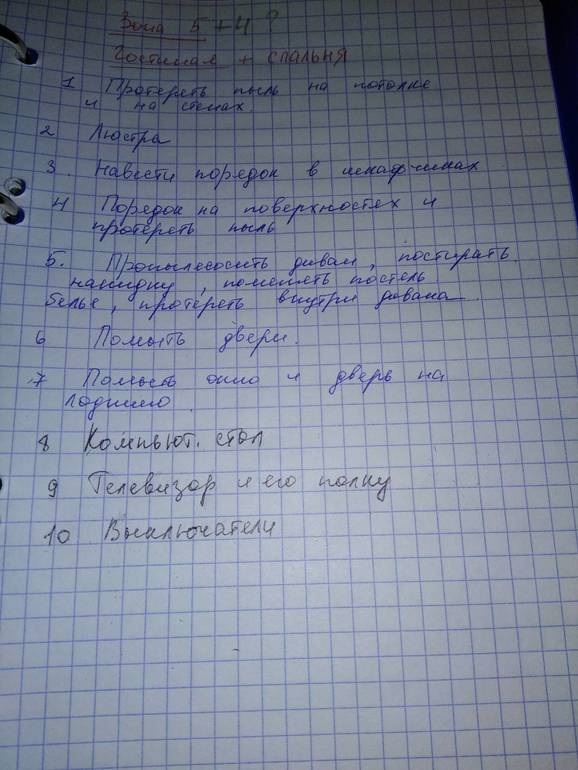 Зона 5 + 4 ?
Гостиная + спальня
1 Протереть пыль на потолке
и на стенах
2 Люстра
3. Навести порядок в шкафчиках
4 Порядок на поверхностях и
протереть пыль
5. Пропылесосить диван, постирать
накидку, поменять постель
белье, протереть внутри дивана
6 Помыть двери.
7 Помыть окно и дверь на
лоджию.
8 Компьют. стол
9 Телевизор и его полку
10 Выключатели